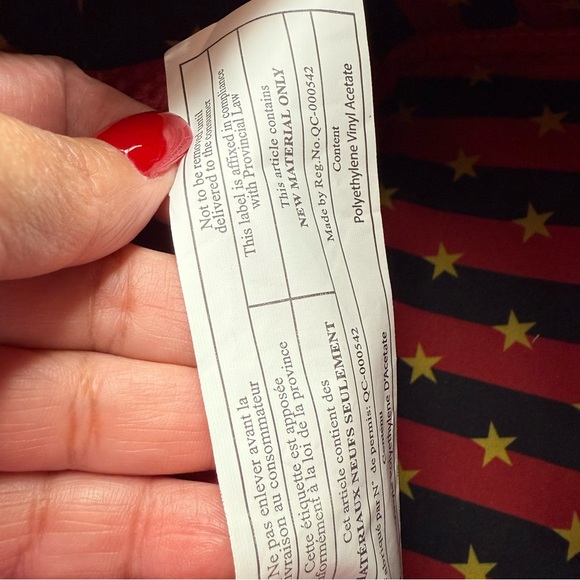 Not to be removed until
delivered to the consumer
This label is affixed in compliance
with Provincial Law
This article contains
NEW MATERIAL ONLY
Made by Reg.No.QC-000542
Content
Polyethylene Vinyl Acetate
Ne pas enlever avant la
vraison au consommateur
Cette étiquette est apposée
formément à la loi de la province
Cet article contient des
ATÉRIAUX NEUFS SEULEMENT
par N° de permis: QC-000542
D'Acetate